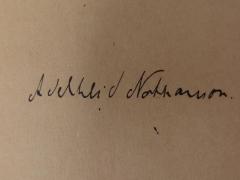 Adelheid Nothanson.